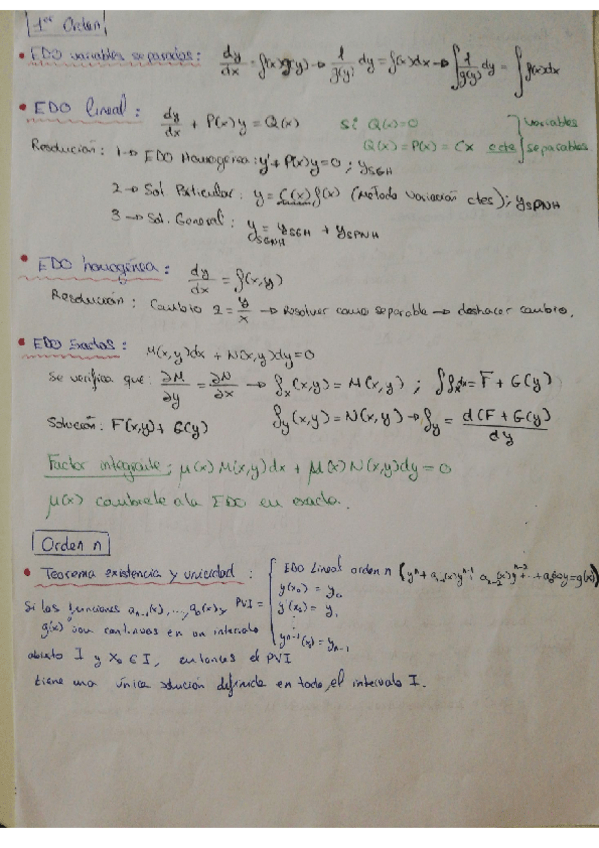 1er Orden
• EDO variables separadas: dy/dx = f(x)g(y) → 1/g(y) dy = f(x)dx → ∫ 1/g(y) dy = ∫ f(x)dx
• EDO lineal: dy/dx + P(x)y = Q(x) si Q(x)=0
Q(x) = P(x) = Cx ecte } variables separables.
Resolución: 1 → EDO Homogénea: y' + P(x)y = 0 ; ySGH
2 → Sol Particular: y = C(x) f(x) (Método variación ctes); ySPNH
3 → Sol. General: ySGNH = ySGH + ySPNH
• EDO homogénea: dy/dx = f(x,y)
Resolución: Cambio z = y/x → Resolver como separable → deshacer cambio.
• EDO Exactas: M(x,y)dx + N(x,y)dy = 0
Se verifica que: ∂M/∂y = ∂N/∂x → fx(x,y) = M(x,y) ; ∫fx dx = F + G(y)
Solución: F(x,y) + G(y) fy(x,y) = N(x,y) → fy = d(F + G(y))/dy
Factor integrante: μ(x) M(x,y)dx + μ(x) N(x,y)dy = 0
μ(x) a la EDO en exacta.
Orden n
• Teorema existencia y unicidad: PVI = { EDO Lineal orden n (yⁿ + an-1(x)yⁿ⁻¹ + an-2(x)yⁿ⁻² + ... + a0(x)y = g(x))
y(x0) = y0
y'(x0) = y1
⋮
yⁿ⁻¹(x0) = yn-1
Si las funciones an-1(x), ..., a0(x) y
g(x) son continuas en un intervalo
abierto I y x0 ∈ I, entonces el PVI
tiene una única solución definida en todo el intervalo I.